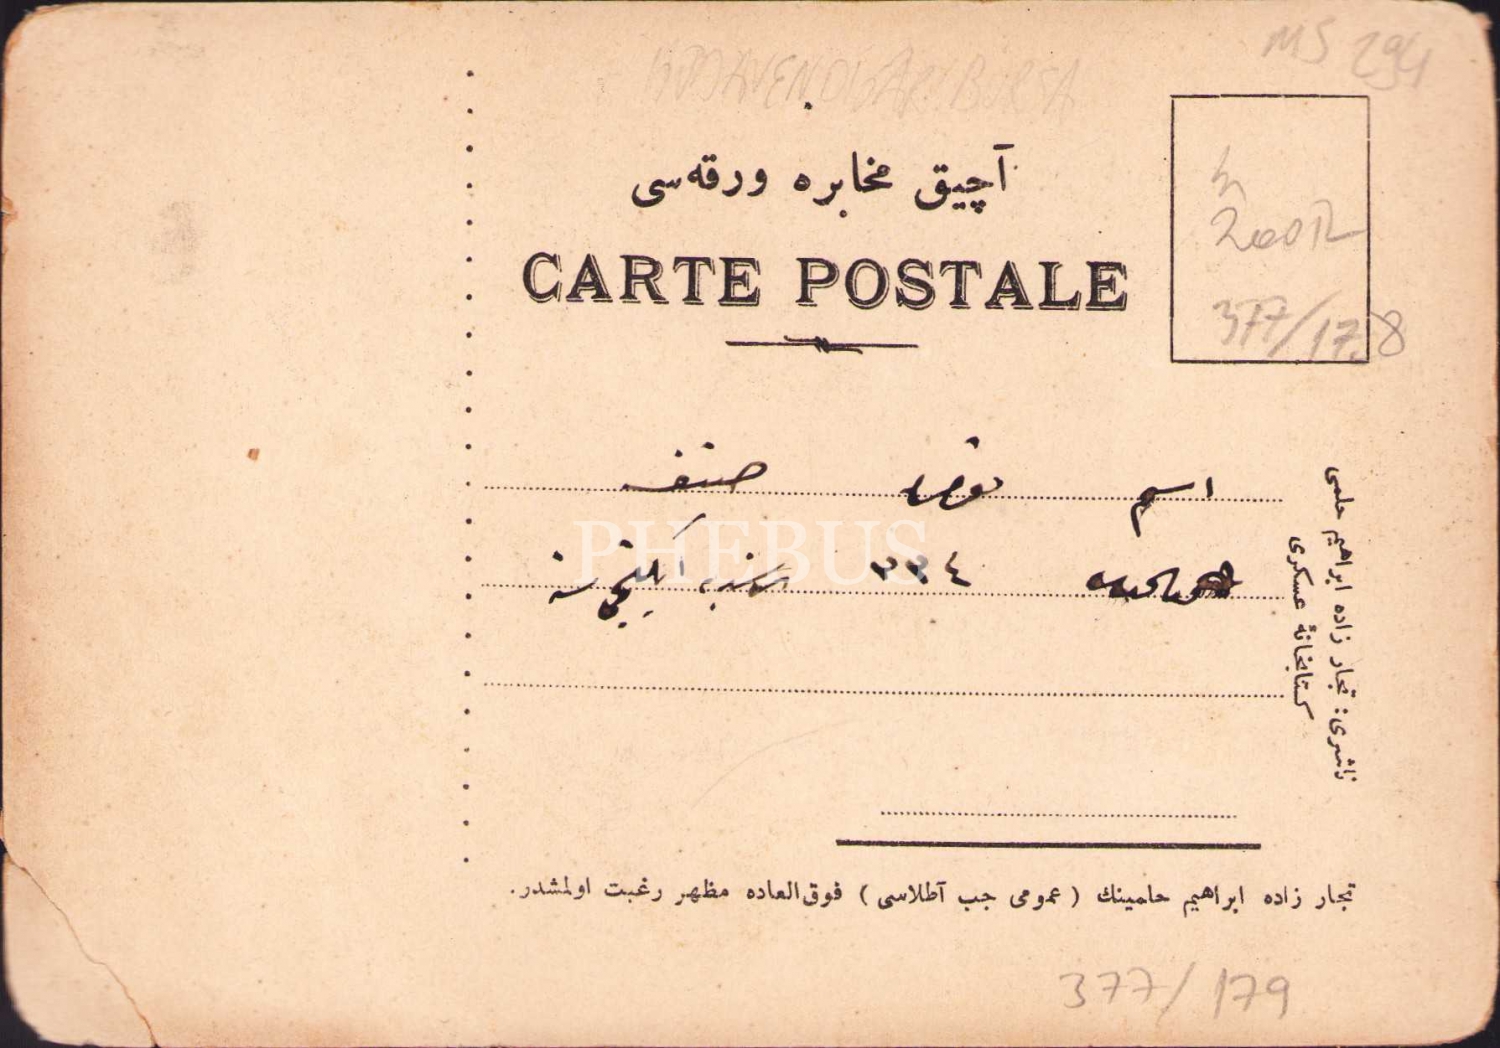 HÜDAVENDİGAR. BURSA
MS 294
آچیق مخابره ورقه‌سی
CARTE POSTALE
2000 TL
377/178
اسم نومرو صنف
٣٣٤
PHEBUS
ناشری: تجار زاده ابراهیم حلمی
كتابخانهٔ عسكری
تجار زاده ابراهیم حلمینك ( عمومی جیب آطلاسی ) فوق‌العاده مظهر رغبت اولمشدر.
377/179